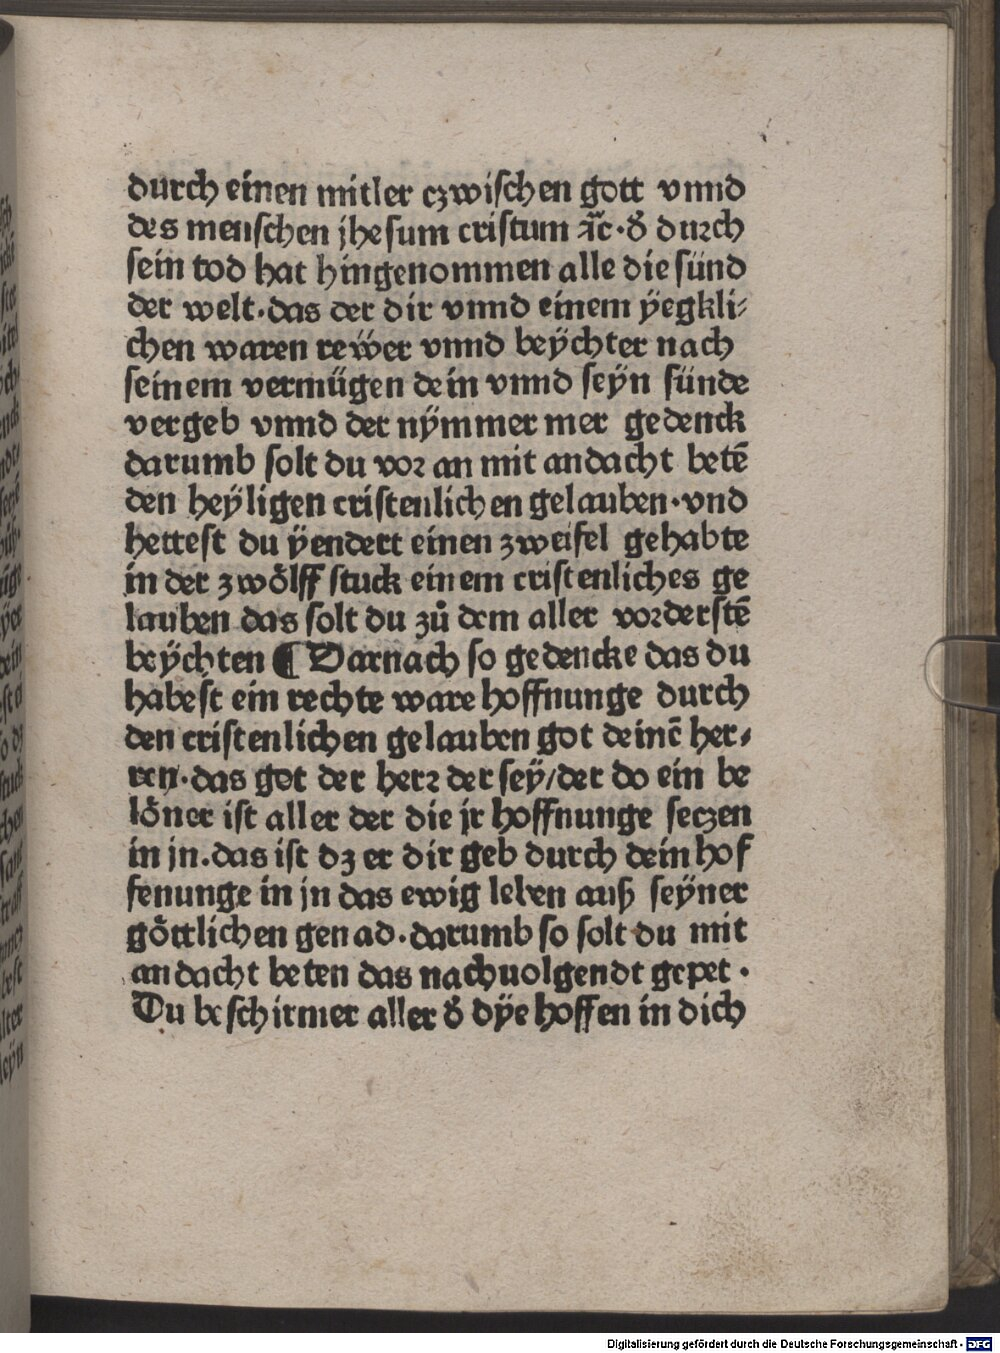 durch einen mitler czwischen gott vnnd
des menschen jhesum cristum ⁊c̃·d̕ durch
sein tod hat hingenommen alle die sünd
der welt·das der dir vnnd einem ÿegkli⸗
chen waren rew̎er vnnd beÿchter nach
seinem vermügen dein vnnd seÿn sünde
vergeb vnnd der nÿmmer mer gedenck
darumb solt du vor an mit andacht betẽ
den heÿligen cristenlichen gelauben·vnd
hettest du ÿendert einen zweifel gehabte
in der zwoͤlff stuck einem cristenliches ge
lauben das solt du zů dem aller vorderstẽ
beÿchten ¶ Darnach so gedencke das du
habest ein rechte ware hoffnunge durch
den cristenlichen gelauben got deinẽ her⸗
ren·das got der herr der seÿ/der do ein be
loͤner ist aller der die jr hoffnunge seczen
in jn.das ist dz er dir geb durch dein hof
fenunge in jn das ewig leben auß seÿner
goͤttlichen genad·darumb so solt du mit
andacht beten das nachuolgendt gepet·
Du beschirmer aller d̕ dÿe hoffen in dich
Digitalisierung gefördert durch die Deutsche Forschungsgemeinschaft - DFG